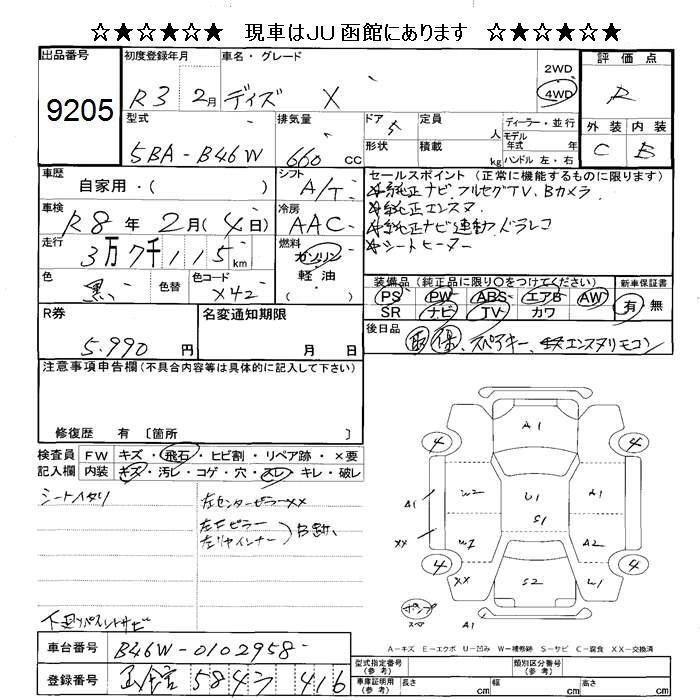 ☆★☆★☆ 現車はJU函館にあります ☆★☆★☆
出品番号 初度登録年月 車名・グレード 評価点
9205 R3 2月 デイズ X 2WD 4WD R
型式 排気量 ドア 定員 ディーラー・並行 外装 内装
5BA-B46W 660cc 5 人 モデル年式 年
形状 積載 kg ハンドル 左・右 C B
車歴 自家用・( ) シフト A/T セールスポイント (正常に機能するものに限ります)
☆純正ナビ フルセグTV、Bカメラ
車検 R8年2月(4日) 冷房 AAC ☆純正エンスタ
☆純正ナビ連動ドラレコ
走行 3万7千115km 燃料 ガソリン 軽油 ( )
☆シートヒーター
色 黒 色替 色コード X42
装備品 (純正品に限り○をつけてください) 新車保証書
PS PW ABS エアB AW 有 無
SR ナビ TV カワ
R券 5,990円 名変通知期限 月 日
後日品 保、スペアキー、エンスタリモコン
注意事項申告欄(不具合内容等は具体的に記入して下さい)
修復歴 有 〔箇所 〕
検査員記入欄 FW キズ・飛石・ヒビ割・リペア跡・×要
内装 キズ・汚レ・コゲ・穴・スレ・キレ・破レ
シートヘタリ
左センターピラーXX
左Fピラー
左リヤインナー
下廻りパネルサビ
A1
4 4
W2 U1 A1
A1 S1
XX W2 A2
4 4
XX S2 W1
A1
A-キズ E-エクボ U-凹み W-補修跡 S-サビ C-腐食 XX-交換済
車台番号 B46W-0102958
登録番号 函館 584 416
型式指定番号(参考) 類別区分番号(参考)
車庫証明用(参考) 長さ cm 幅 cm 高さ cm